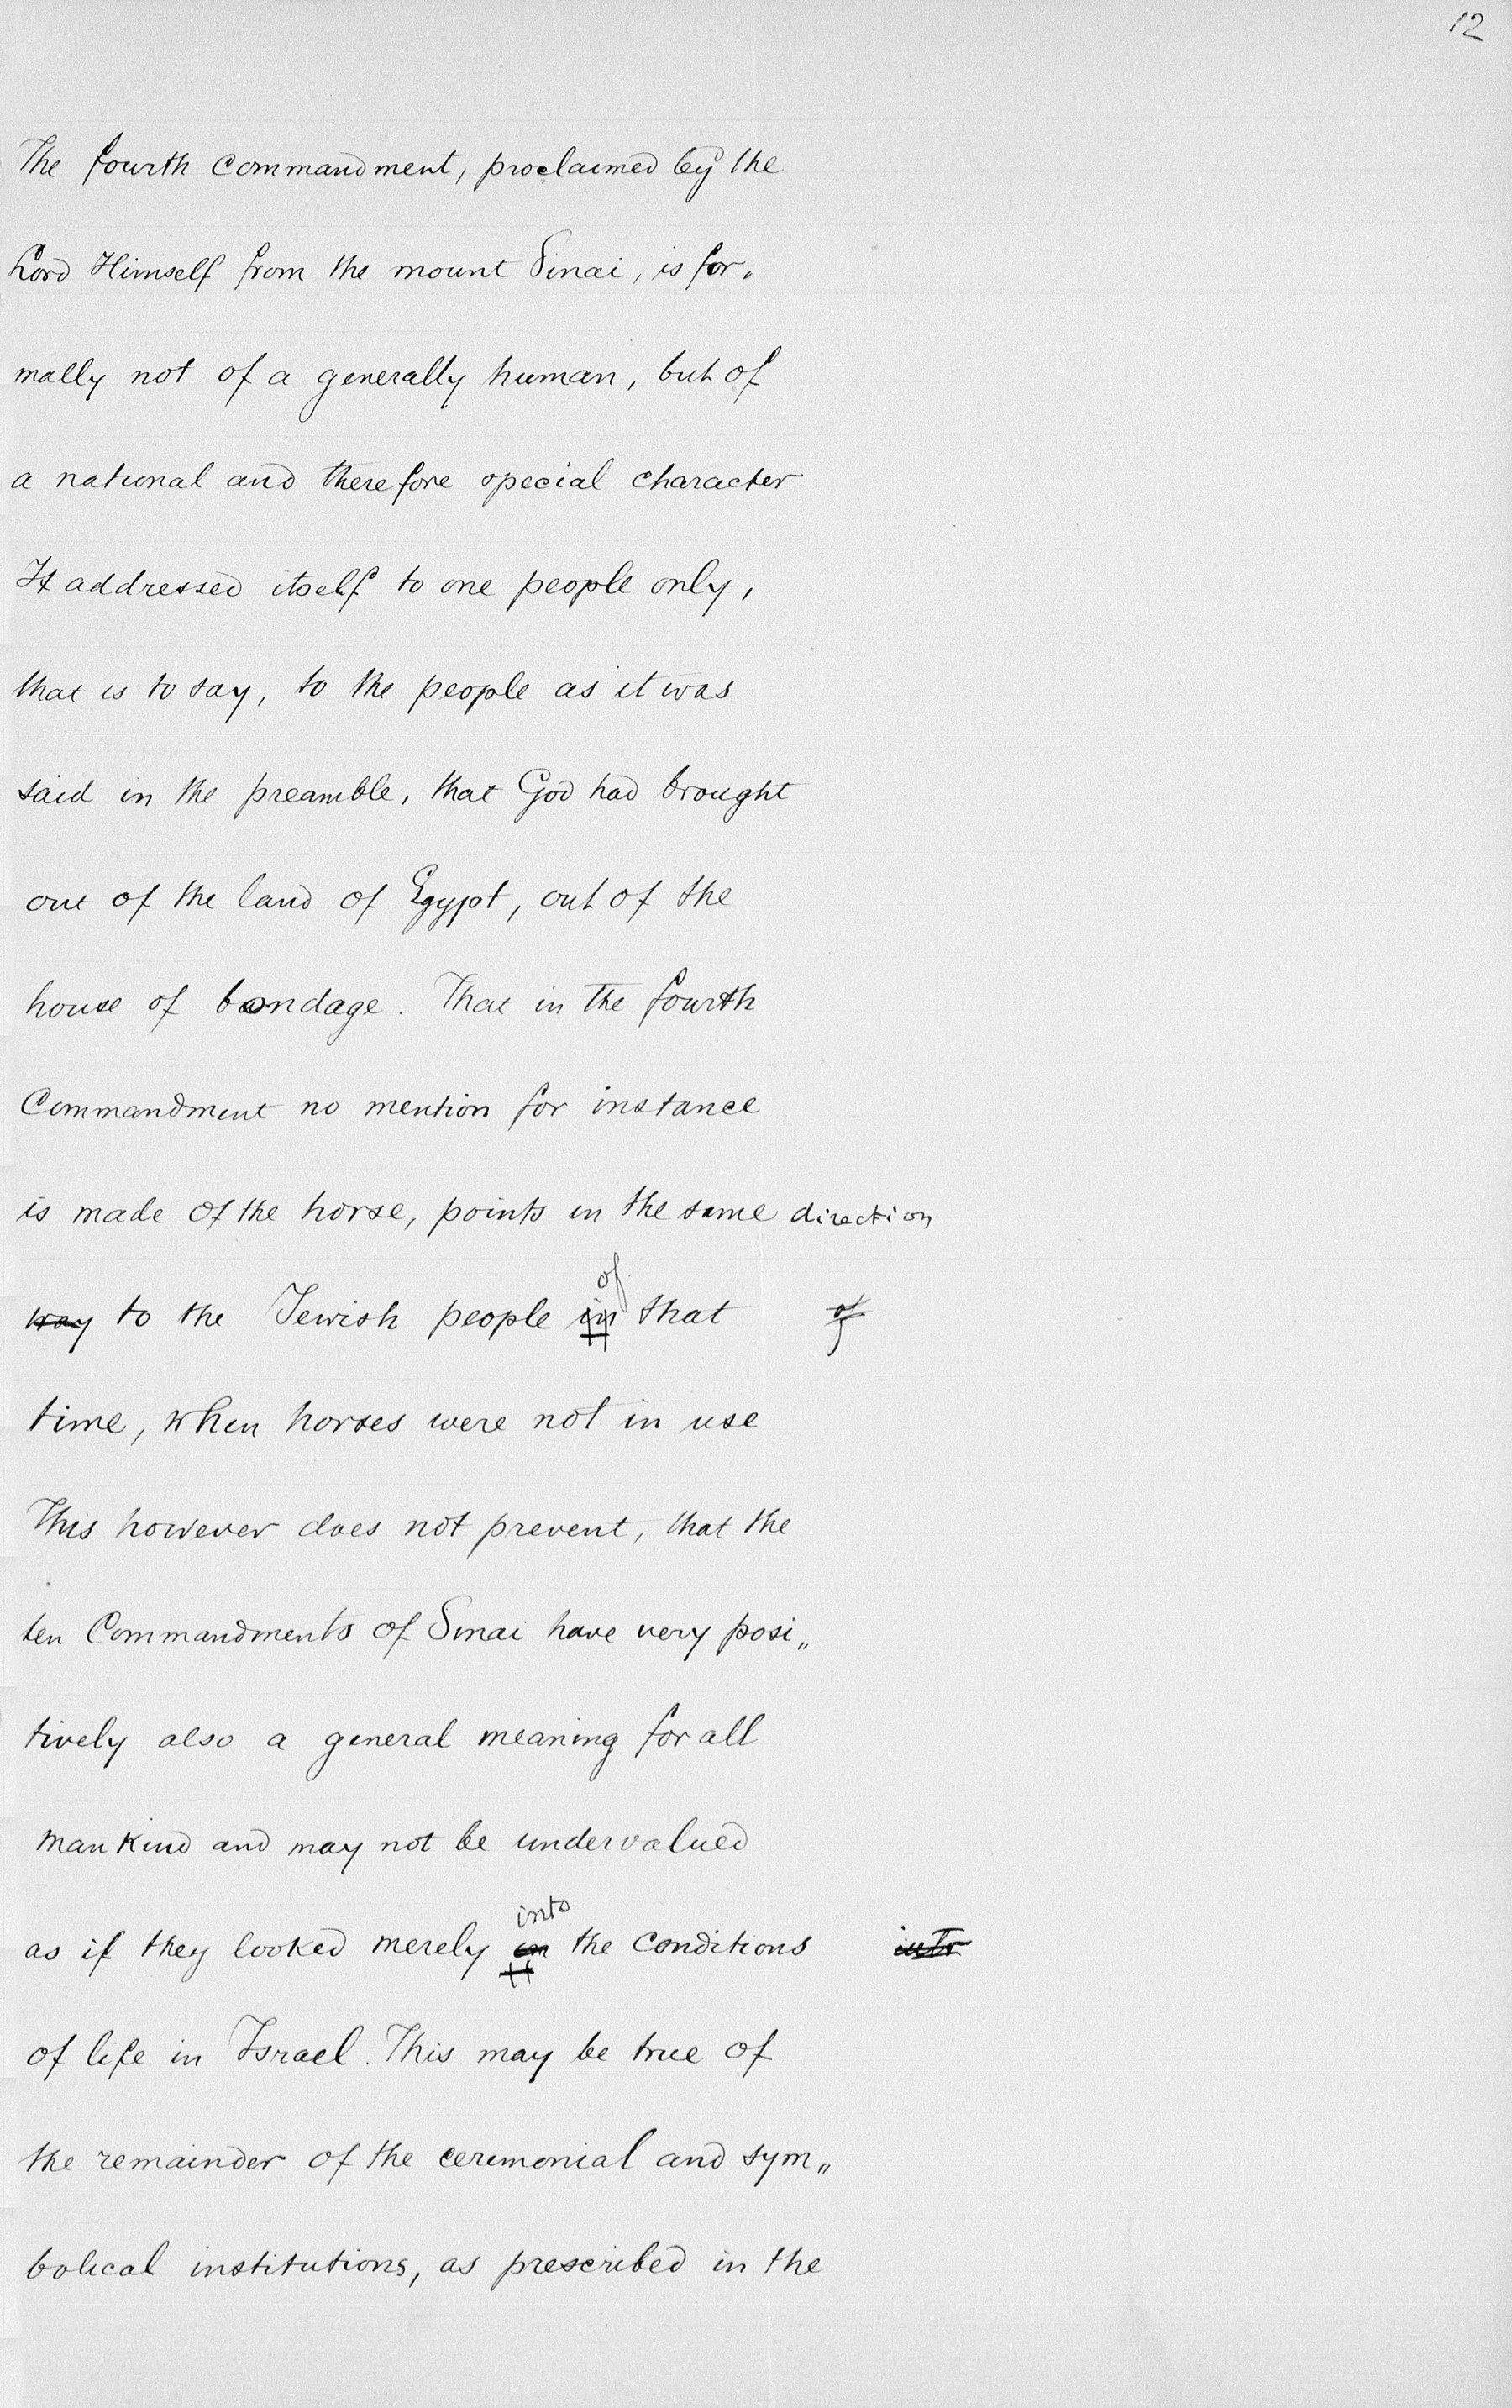 12
The fourth commandment, proclaimed by the
Lord Himself from the mount Sinai, is for„
mally not of a generally human, but of
a national and therefore special character
It addressed itself to one people only,
that is to say, to the people as it was
said in the preamble, that God had brought
out of the land of Egypt, out of the
house of bondage. That in the fourth
Commandment no mention for instance
is made of the horse, points in the same direction
of
way to the Jewish people in that of
time, when horses were not in use
This however does not prevent, that the
ten Commandments of Sinai have very posi„
tively also a general meaning for all
mankind and may not be undervalued
into
as if they looked merely on the conditions into
of life in Israel. This may be true of
the remainder of the ceremonial and sym„
bolical institutions, as prescribed in the